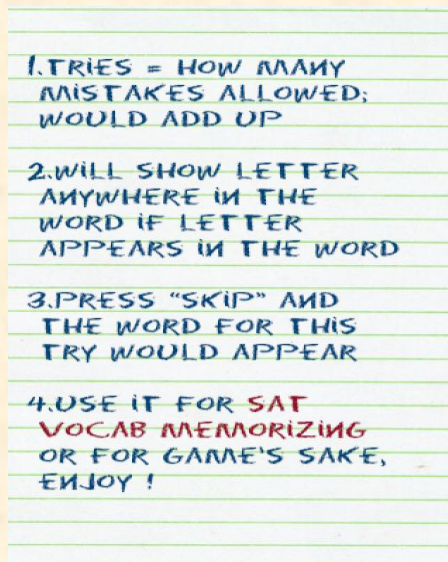 1.TRIES = HOW MANY
MISTAKES ALLOWED;
WOULD ADD UP
2.WILL SHOW LETTER
ANYWHERE IN THE
WORD IF LETTER
APPEARS IN THE WORD
3.PRESS "SKIP" AND
THE WORD FOR THIS
TRY WOULD APPEAR
4.USE IT FOR SAT
VOCAB MEMORIZING
OR FOR GAME'S SAKE,
ENJOY !